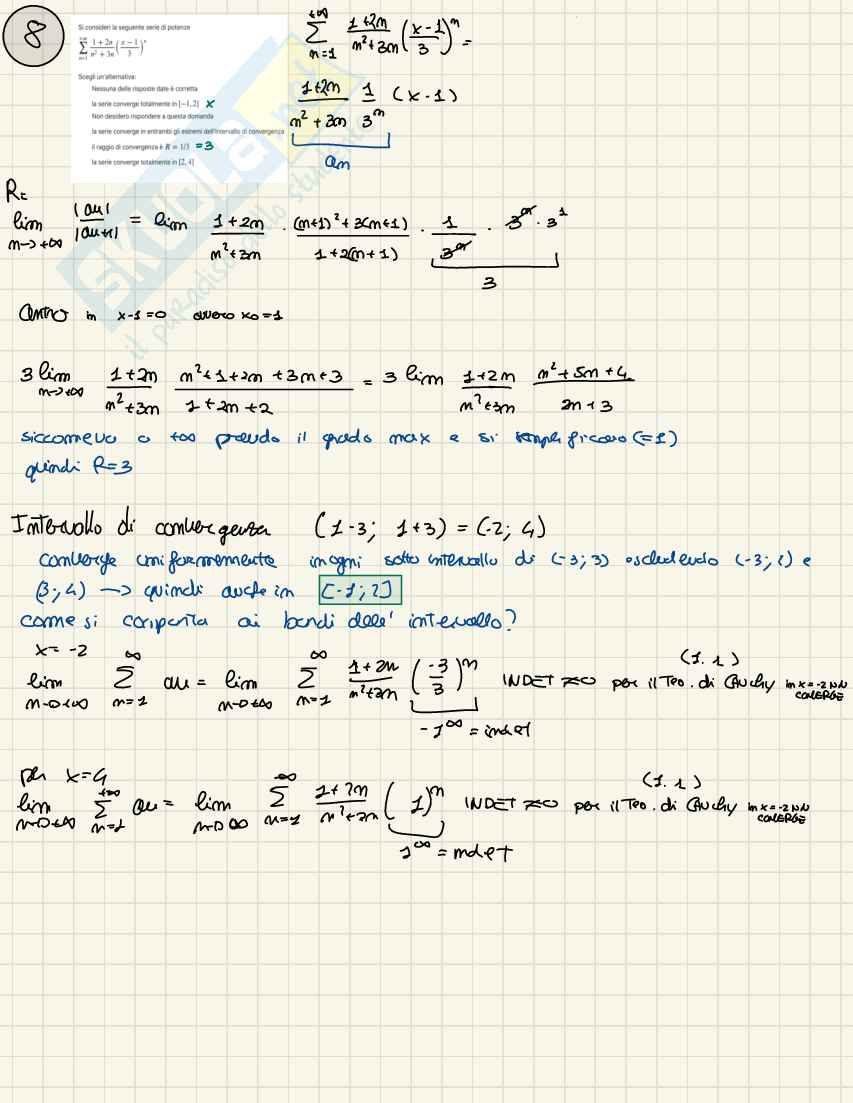 8
Si consideri la seguente serie di potenze
+∞ ∑ n=1 1+2n / n²+3n (x−1 / 3)ⁿ
Scegli un'alternativa:
Nessuna delle risposte date è corretta
la serie converge totalmente in [−1, 2] x
Non desidero rispondere a questa domanda
la serie converge in entrambi gli estremi dell'intervallo di convergenza
il raggio di convergenza è R = 1/3 = 3
la serie converge totalmente in [2, 4]
+∞ ∑ n=1 1+2n / n²+3n (x-1 / 3)ⁿ =
1+2n / n²+3n 1 / 3ⁿ (x-1)
an
SKUOLA.net
il paradiso dello studente
R=
lim n→+∞ |an| / |an+1| = lim 1+2n / n²+3n · (n+1)²+3(n+1) / 1+2(n+1) · 1 / 3ⁿ · 3ⁿ · 3¹
3
centro in x-1=0 ovvero x0=1
3 lim n→+∞ 1+2n / n²+3n n²+1+2n+3n+3 / 1+2n+2 = 3 lim 1+2n / n²+3n n²+5n+4 / 2n+3
siccome va a +∞ prendo il grado max e si semplificano (=1)
quindi R=3
Intervallo di convergenza (1-3; 1+3) = (-2; 4)
converge uniformemente in ogni sotto intervallo di (-3;3) escludendo (-3;2) e
(3;4) → quindi anche in [-1;2]
come si comporta ai bordi dell' intervallo?
x= -2
lim n→+∞ ∞ ∑ n=1 an = lim n→+∞ ∞ ∑ n=1 1+2n / n²+3n (-3 / 3)ⁿ INDET ≠0 per il Teo. di Cauchy (1.1) in x=-2 NN CONVERGE
-1^∞ = indet
per x=4
lim n→+∞ +∞ ∑ n=1 an = lim n→∞ ∞ ∑ n=1 1+2n / n²+3n (1)ⁿ INDET ≠0 per il Teo. di Cauchy (1.1) in x=-2 NN CONVERGE
1^∞ = indet